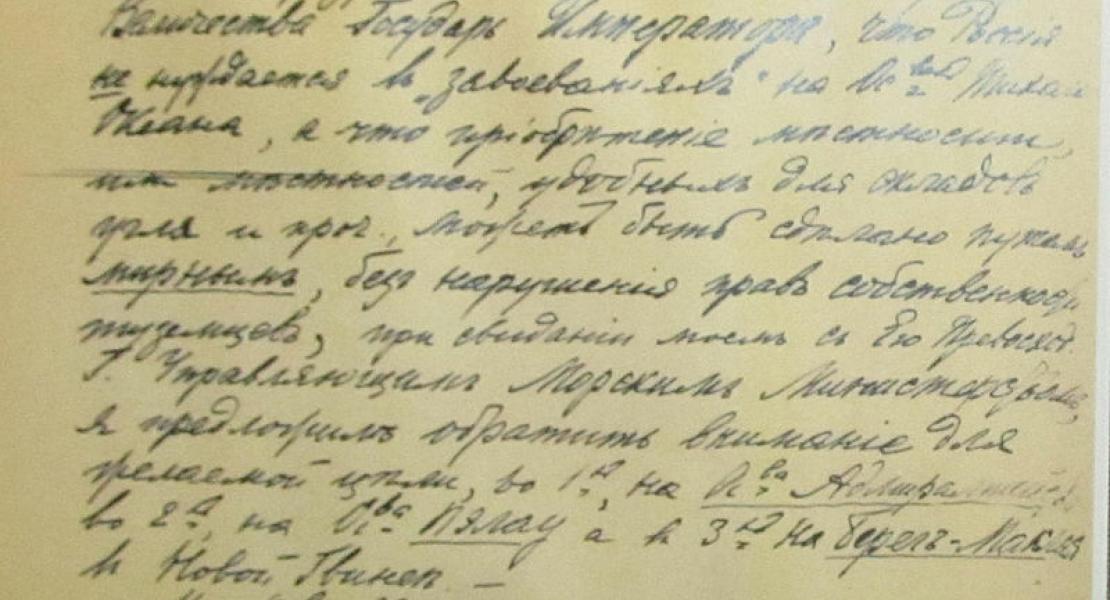 Величества Государь Императора, что Россія
не нуждается в „завоеваніяхъ" на о-вахъ Тихаго
Океана, а что пріобрѣтеніе мѣстности,
или мѣстностей, удобныхъ для складовъ
угля и проч., можетъ быть сдѣлано путемъ
мирнымъ, безъ нарушенія правъ собственности
туземцевъ, при свиданіи моемъ съ Его Превосход.
Г. Управляющимъ Морскимъ Министерствомъ,
я предложилъ обратить вниманіе для
желаемой цѣли, во 1хъ, на о-ва Адмиралтейства
во 2хъ, на о-ва Пэлау а в 3хъ на Берегъ-Маклая
в Новой Гвинеѣ. —